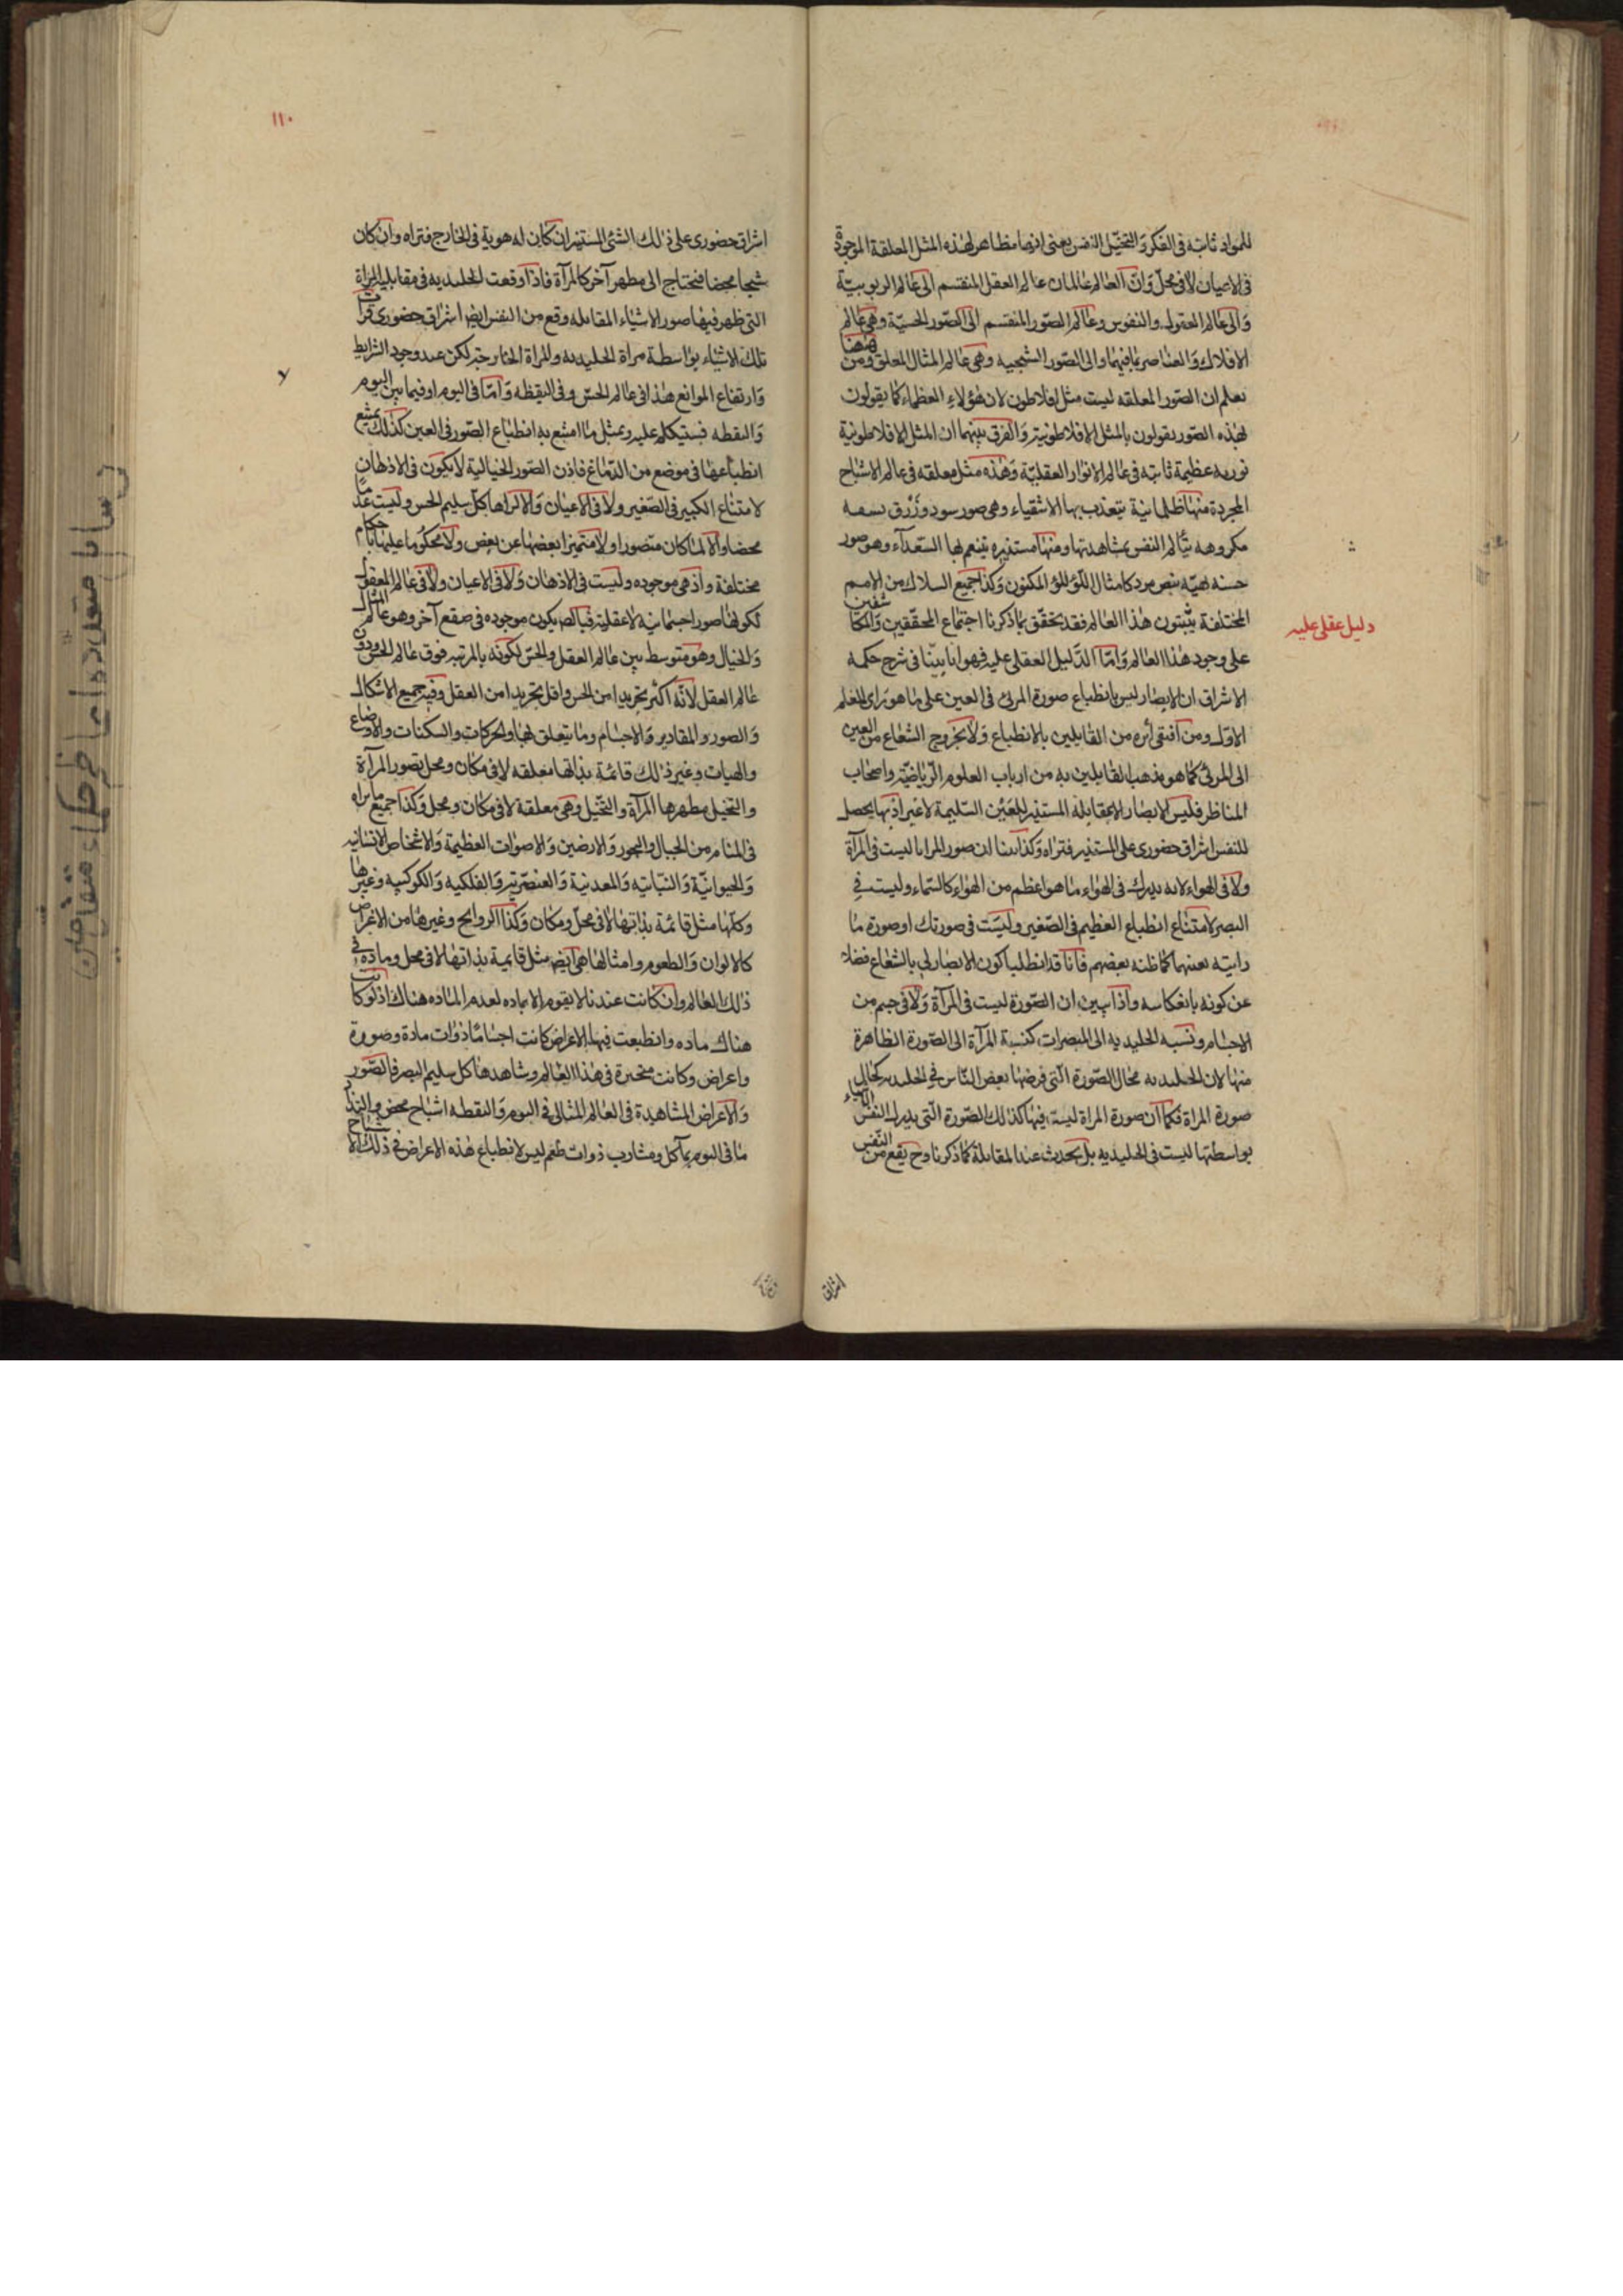 للمواد ثابته فى الفكر والتخيّل النفس بمعنى انها مظاهر لهذه المثل المعلقة الموجودة
فى الاعيان لا فى محلّ وَانّ العالم عالمان عالم العقل المنقسم الى عَالم الربوبيّة
وَالى عَالم العقول والنفوس وعَالم الصّور المنقسم الى الصّور الحسيّة وهى عَالم
الافلاك وَالعناصر بما فيهما والى الصّور الشجيه وهى عَالم المثال المعلق ومن ههنا
نعلم ان الصّور المعلقه ليست مثل افلاطون لان هؤلاءِ العظماء كما يقولون
بهذه الصّور يقولون بالمثل الافلاطونية وَالفرق بينهما ان المثل الافلاطونية
نوريه عظيمة ثابته فى عَالم الانوار العقليّة وَهذه مثل معلقه فى عَالم الاشباح
المجردة منها ظلمانية يتعذب بها الاشقياء وهى صور سود وزُرْق بشعه
مكروهه يتألم النفس بمشاهدتها ومنها مستنيره يتنعم بها السّعدآء وهو صور
حسنه بهيّه بيض مرد كامثال اللّؤلؤ المكنون وَكذا جميع السلاك من الامم
المختلفة يثبتون هذا العالم فقد تحقّق بما ذكرنا اجتماع المحققين وَالمكاشفين
على وجود هذا العالم وَامّا الدّليل العقلى عليه فهو انا بيّنا فى شرح حكمه
الاشراق ان الابصار ليس بانطباع صورة المرئى فى العين على ما هو راى المعلم
الاوّل ومن اقتفى أثره من القايلين بالانطباع وَلا بخروج الشعاع من العين
الى المرئى كما هو مذهب القايلين به من ارباب العلوم الرّياضيّة واصحاب
المناظر فليس الابصار الا بمقابلة المستنير للعَيْن السّليمة لا غير اذ بها يحصل
للنفس اشراق حضورى على المستنير فتراه وَكذا بينا ان صور المرايا ليست فى المرآة
ولا فى الهواء لانه يدرك فى الهواء ما هو اعظم من الهواء كالسّماء وليست فى
البصر لامتناع انطباع العظيم فى الصّغير وليسَت فى صورتك او صورة ما
رايته بعينها كما ظنه بعضهم فانا قد ابطلنا كون الابصار بالشعاع فضلا
عن كونه بانعكاسه واذا تبين ان الصّورة ليست فى المرآة وَلا فى جسم من
الاجسام ونسبه الجليديه الى المبصرات كنسبة المرآة الى الصّورة الظاهرة
منها لان الجليديه محال الصّورة الّتى فرضها بعض النّاس فى الجليديه كحال
صورة المراة فكما ان صورة المراة ليست فيها كذلك الصّورة الّتى يدرك النفس الاشياء
بواسطتها ليست فى الجليديه بل تحدث عند المقابلة كما ذكرنا وح يقع من النّفس
اشراق
دليل عقلى عليه
١١٠
اشراق حضورى على ذلك الشئ المستنير ان كان له هوية فى الخارج فتراه وان كان
شبحا محضا فيحتاج الى مظهر آخر كالمرآة فاذا وقعت الجليديه فى مقابلة المرآة
التى ظهر فيها صور الاشياء المقابله وقع من النفس ايضا اشراق حضورى فرات
تلك الاشياء بواسطة مرآة الجليديه والمرآة الخارجيّة لكن عند وجود الشرايط
وَارتفاع الموانع هذا فى عَالم الحسّ وفى اليقظه وَامّا فى النوم او فيما بين النوم
وَاليقظه فستيكلم عليه وبمثل ما امتنع به انطباع الصّور فى العين كذلك يمتنع
انطباعها فى موضع من الدّماغ فاذن الصّور الخيالية لا يكون فى الاذهان
لامتناع انطباع الكبير فى الصّغير ولا فى الاعيان وَالّا لراها كلّ سليم الحسّ وليست عدما
محضا والّا لما كان متصورا ولا متميزا بعضها عن بعض ولا محكوما عليها باحكام
مختلفة واذ هى موجوده وليست فى الاذهان وَلا فى الاعيان ولا فى عَالم العقول
لكونها صورا جسمانية لا عقلية فبالضرورة يكون موجوده فى صقع آخر وهو عَالم المثال
وَالخيال وهو متوسط بين عَالم العقل والحسّ لكونه بالمرتبه فوق عَالم الحس ودون
عَالم العقل لانّه اكثر تجريدا من الحس واقل تجريدا من العقل وفيه جميع الاشكال
وَالصور والمقادير وَالاجسام وما يتعلق بها من الحركات والسكنات والاوضاع
والهيات وغير ذلك قائمة بذاتها معلقه لا فى مكان ومحل بصور المرآة
والتخيل مظهرها المرآة والتّخيل وهى معلقة لا فى مكان ومحل وَكذا جميع ما يراه
فى المنام من الجبال والبحور وَالارضين وَالاصوات العظيمة وَالاشخاص الانسانيه
وَالحيوانيّة وَالنباتيه وَالمعدنية وَالعنصريّه وَالفلكيه وَالكوكبيه وغيرها
وكلّها مثل قائمة بذاتها لا فى محلّ ومكان وَكذا الروايح وغيرها من الاعراض
كالالوان وَالطعوم وامثالها هى ايضا مثل قايمة بذاتها لا فى محل ومادّه فى
ذلك العالم وان كانت عندنا لا يقوم الا بماده لعدم المادّه هناك اذ لو كانت
هناك ماده وانطبعت فيها الاعراض كانت اجساما ذوات مادة وصورة
واعراض وكانت متحيزة فى هذا العالم وشاهدها كل سليم البصر فالصّور
وَالاعراض المشاهدة فى العالم المثالى فى النوم وَاليقظه اشباح محض والتذاذ
ما فى النوم بمآكل ومشارب ذوات طعم ليس لانطباع هذه الاعراض فى ذلك الاشباح
رسايل متعدده از حكماء متقدمين